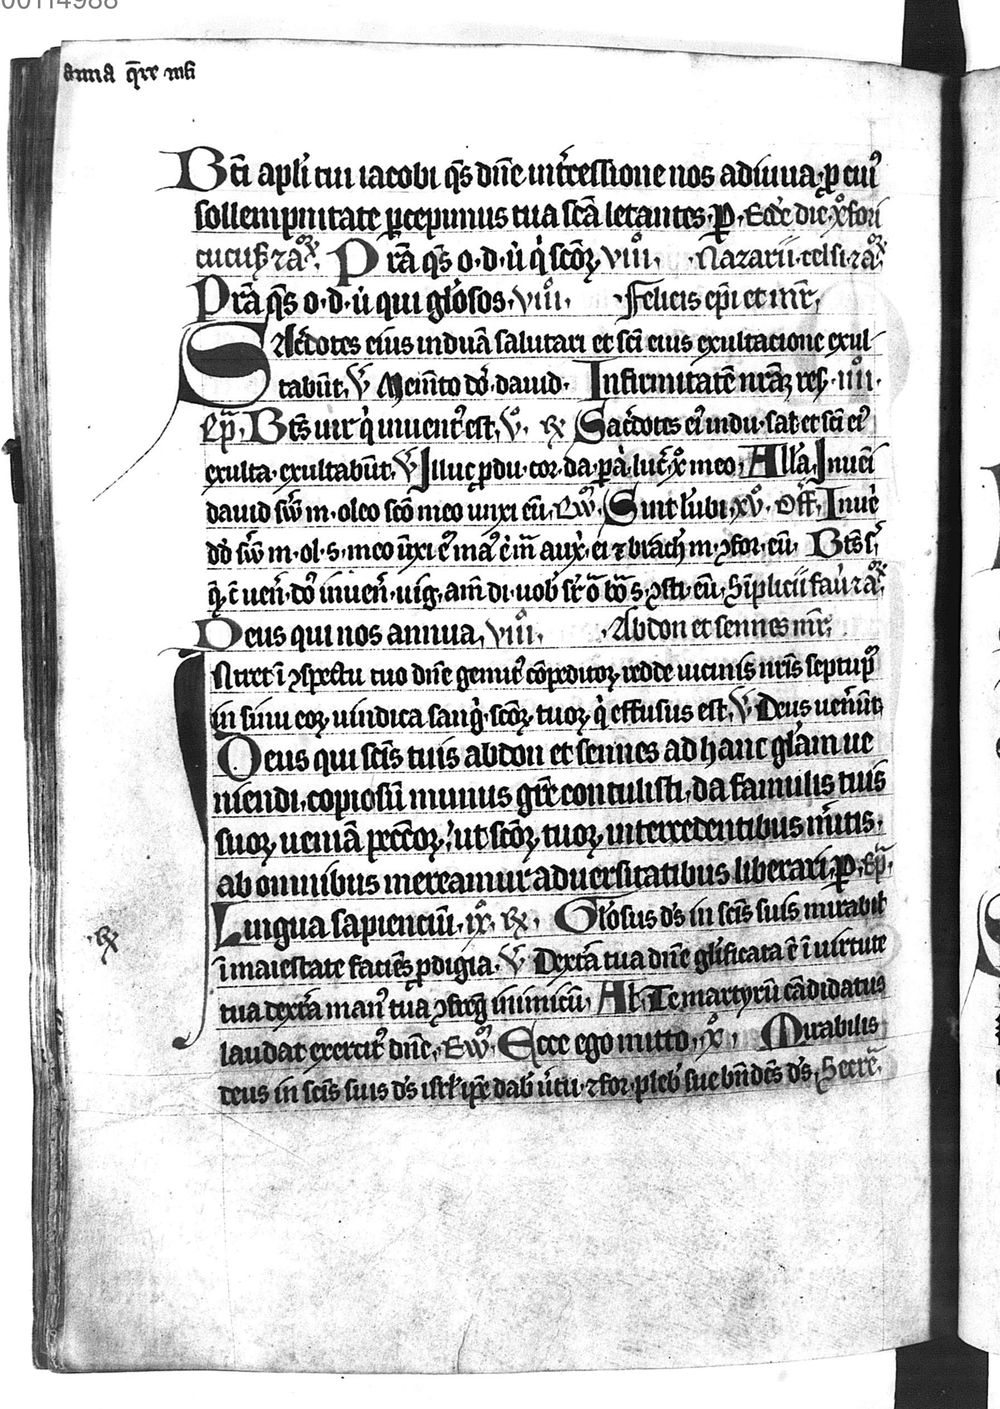 00114988
anna q̄re
Bti apl'i tui iacobi qs dn̄e int'cessione nos adiuua. p cui'
sollempnitate pcepimus tua scā letantes. p. Eodē die xp̄ofori
cucuf' ⁊ a
Prā qs o. d. ut q' scōꝝ. viii. Nazarii. celsi. ⁊ a
Prā qs o. d. ut qui gl'osos. viii. Felicis ep̄i et mr̄
Sacdotes eius induā salutari et sci eius exultacione exul
tabūt. V Memto dō. dauid. Infirmitatē nrāꝫ res. iiii.
Ep̄. Bt̄s uir q' inuent' est. v. R Sac'dotes ei' indu. sal. et sci ei'
exulta. exultabūt. V Illuc pdu. cor. da. pa. luc. xp̄o meo. All'a. Inueī
dauid s'uū m. oleo scō meo unxi eū. Ew. Sint lūbi. xv. Off. Inuē
dd s'uū m. ol. s. meo ūxi eū ma' ei m̄ aux. ei ⁊ brach m. ꝯfor. eū. Bt̄s s'
q. c̄ uen. do' inuen. uig. am̄ di. uob s' o bo s. ꝯsti. eū. Simplicii fau. ⁊ a
Deus qui nos annua. viii. Abdon et sennes mr̄
Intret ī ꝯspectu tuo dn̄e gemit' cōpeditoꝝ. redde uicinis nr̄is septup'
in sinu eoꝝ uindica sang'. scōꝝ. tuoꝝ. q' effusus est. V Deus uenerūt
Deus qui scis tuis abdon et sennes ad hanc gl'am ue
niendi. copiosū munus gr̄e contulisti. da famulis tuis
suoꝝ ueniā pccōꝝ. ut scōꝝ. tuoꝝ. intercedentibus m'itis.
ab omnibus mereamur aduersitatibus liberari. p. Ep̄.
Lingua sapienciū. ix. R. Gl'osus ds in scis suis mirabil'
ī maiestate faciēs pdigia. V Dext'a tua dn̄e gl'ificata ē ī uirtute
tua dext'a man' tua ꝯfreg' inimicū. Al. Te martyrū cādidatus
laudat exercit' dn̄e. Ew. Ecce ego mitto. x. Mirabilis
deus in scis suis ds isrl' ipe dab' u'tu. ⁊ for. pleb' sue bn̄dcs ds. Secre
R